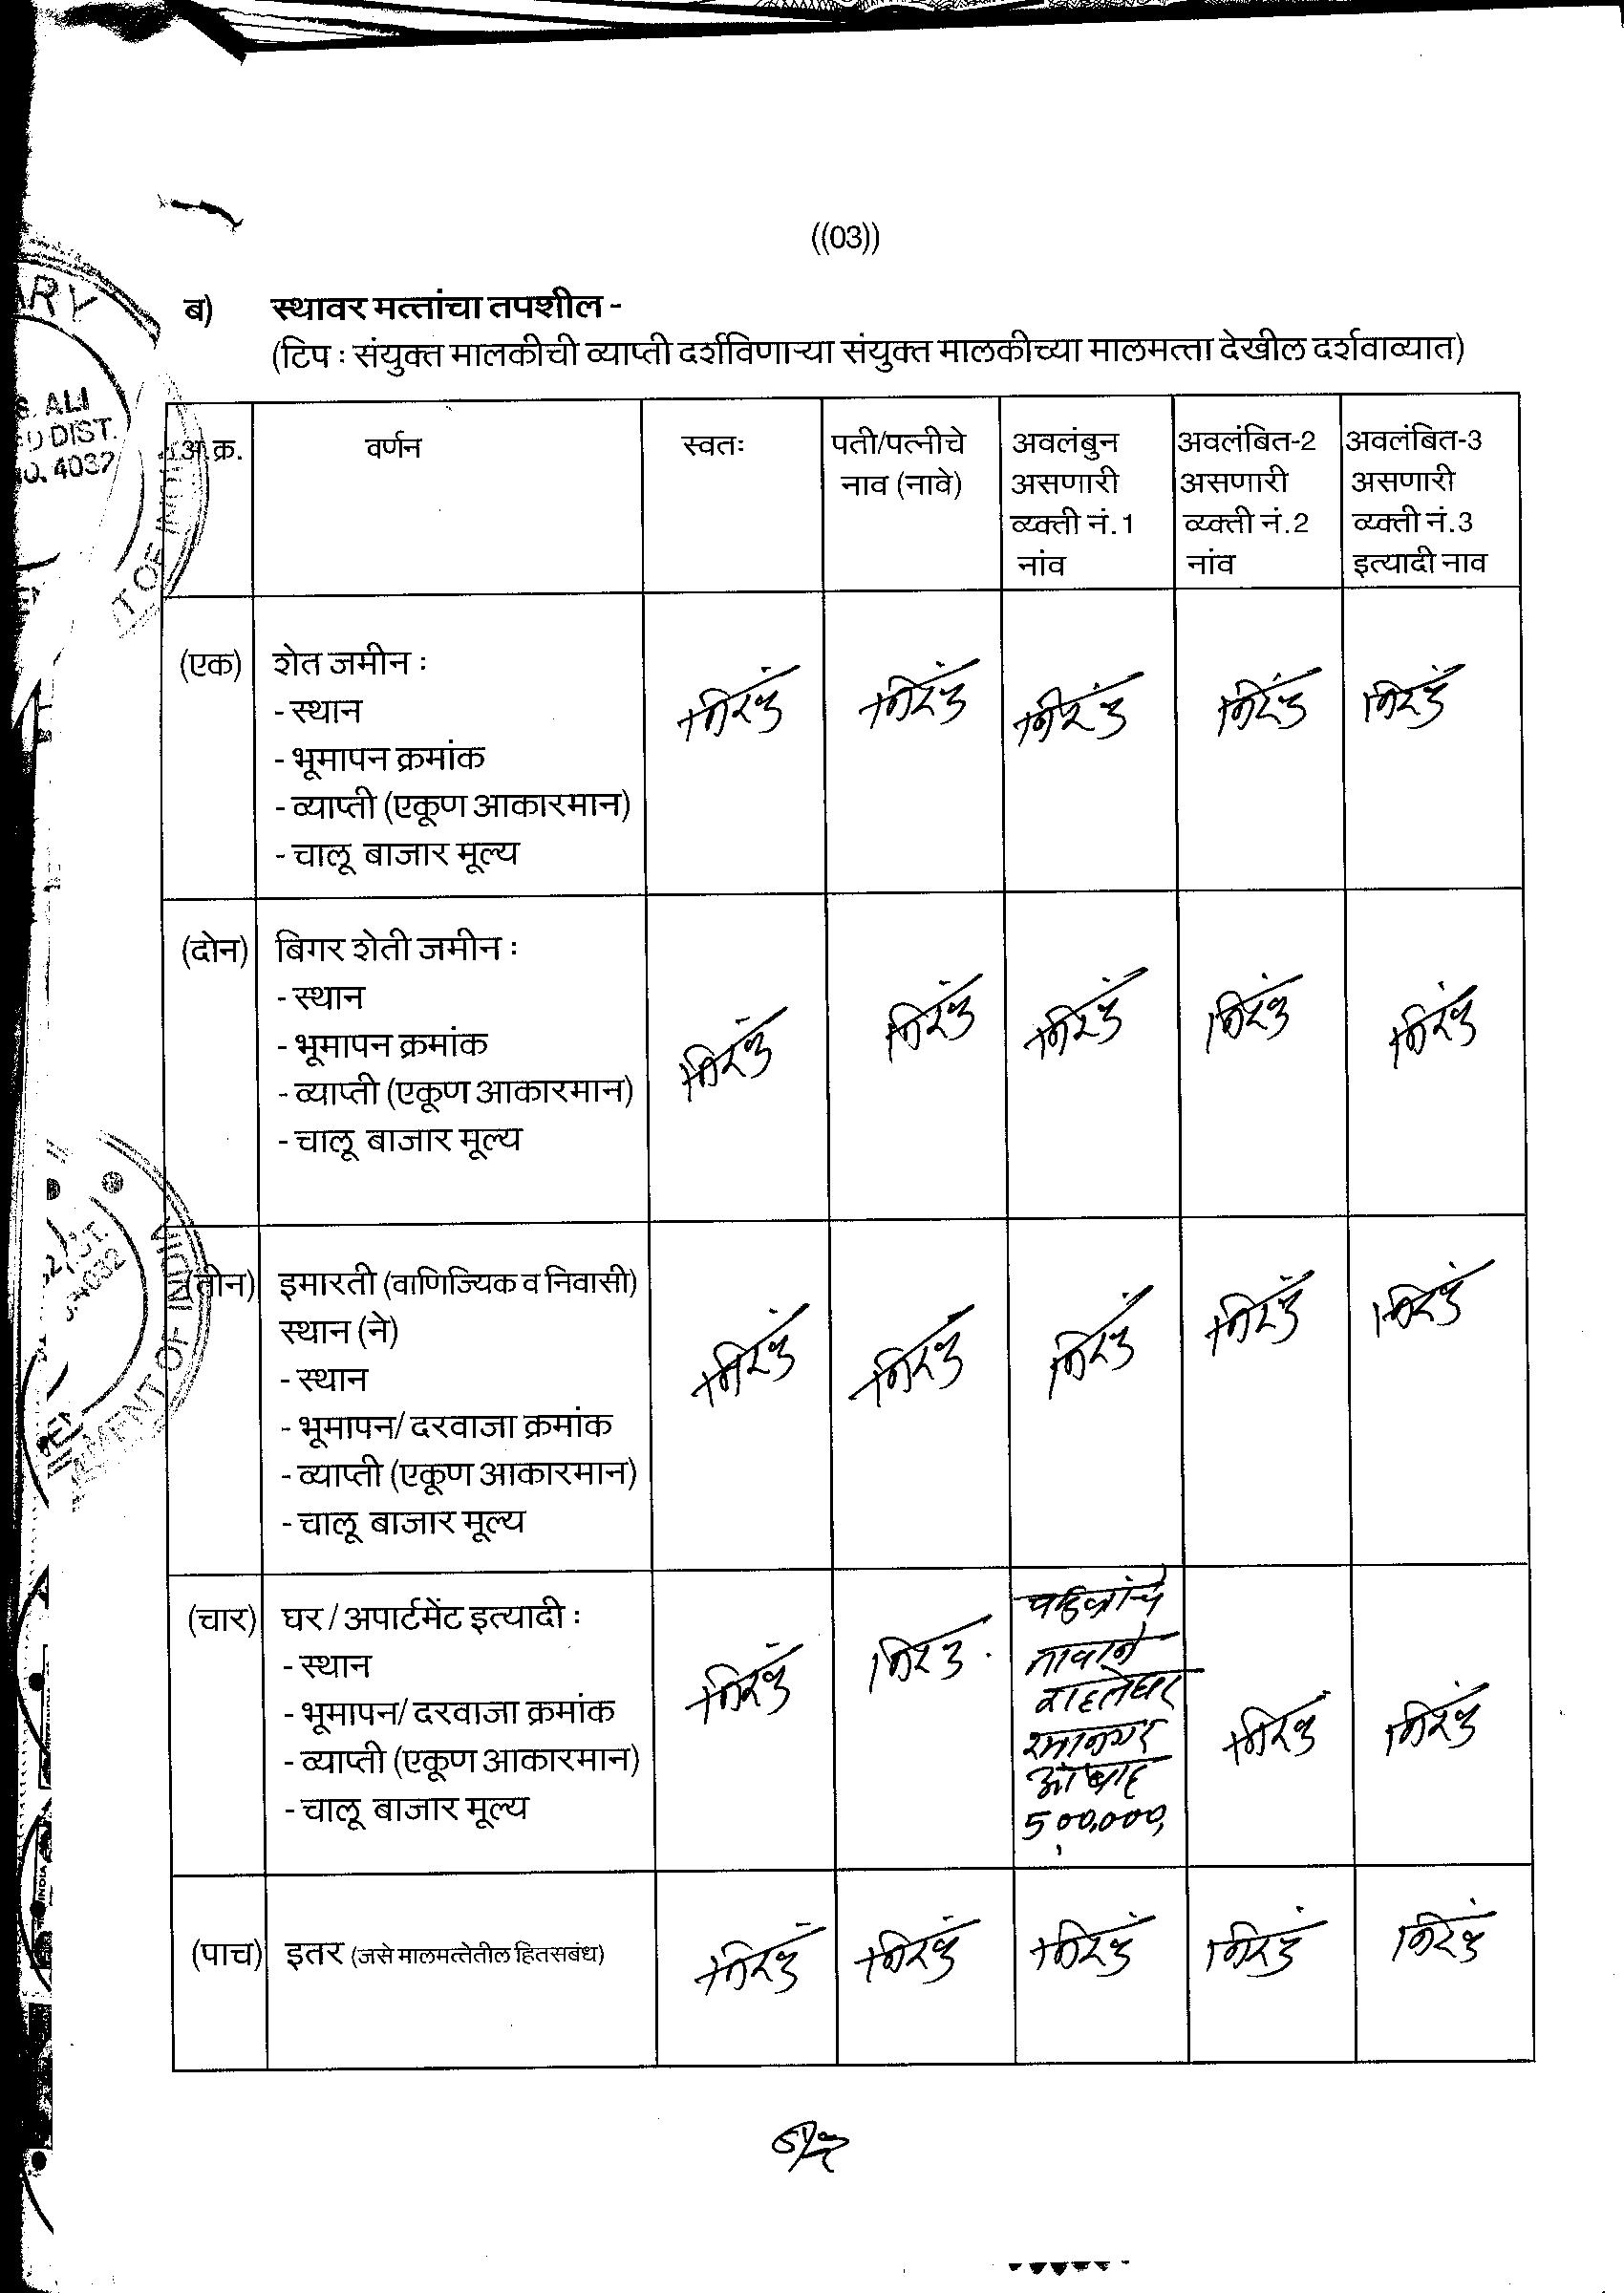 ((03))
ब) स्थावर मत्तांचा तपशील -
(टिप : संयुक्त मालकीची व्याप्ती दर्शविणाऱ्या संयुक्त मालकीच्या मालमत्ता देखील दर्शवाव्यात)
अ.क्र. वर्णन स्वतः पती/पत्नीचे नाव (नावे) अवलंबुन असणारी व्यक्ती नं.1 नांव अवलंबित-2 असणारी व्यक्ती नं.2 नांव अवलंबित-3 असणारी व्यक्ती नं.3 इत्यादी नाव
(एक) शेत जमीन : निरंक निरंक निरंक निरंक निरंक
- स्थान
- भूमापन क्रमांक
- व्याप्ती (एकूण आकारमान)
- चालू बाजार मूल्य
(दोन) बिगर शेती जमीन : निरंक निरंक निरंक निरंक निरंक
- स्थान
- भूमापन क्रमांक
- व्याप्ती (एकूण आकारमान)
- चालू बाजार मूल्य
(तीन) इमारती (वाणिज्यिक व निवासी) निरंक निरंक निरंक निरंक निरंक
स्थान (ने)
- स्थान
- भूमापन/ दरवाजा क्रमांक
- व्याप्ती (एकूण आकारमान)
- चालू बाजार मूल्य
(चार) घर / अपार्टमेंट इत्यादी : निरंक निरंक वडिलांचे नावाने राहतेघर रमानगर औ बाद 5,00,000, निरंक निरंक
- स्थान
- भूमापन/ दरवाजा क्रमांक
- व्याप्ती (एकूण आकारमान)
- चालू बाजार मूल्य
(पाच) इतर (जसे मालमत्तेतील हितसबंध) निरंक निरंक निरंक निरंक निरंक
ALI
DIST.
4032
T OF INDIA
4032
MENT OF INDIA